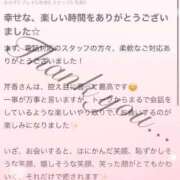 幸せな、楽しい時間をありがとうござい
ました☆
ありがとうございました！
芹香さんは、控え目に言って最高です😊
一事が万事と言いますが、トークからまるで会話を
しているような楽しいやり取りで、お会いするのが
楽しみになりました！
いざ、お会いすると、はにかんだ笑顔、恥ずかしそ
うな笑顔、嬉しそうな笑顔、笑った顔がとてもかわ
いく、それだけで癒されます
Thank you...